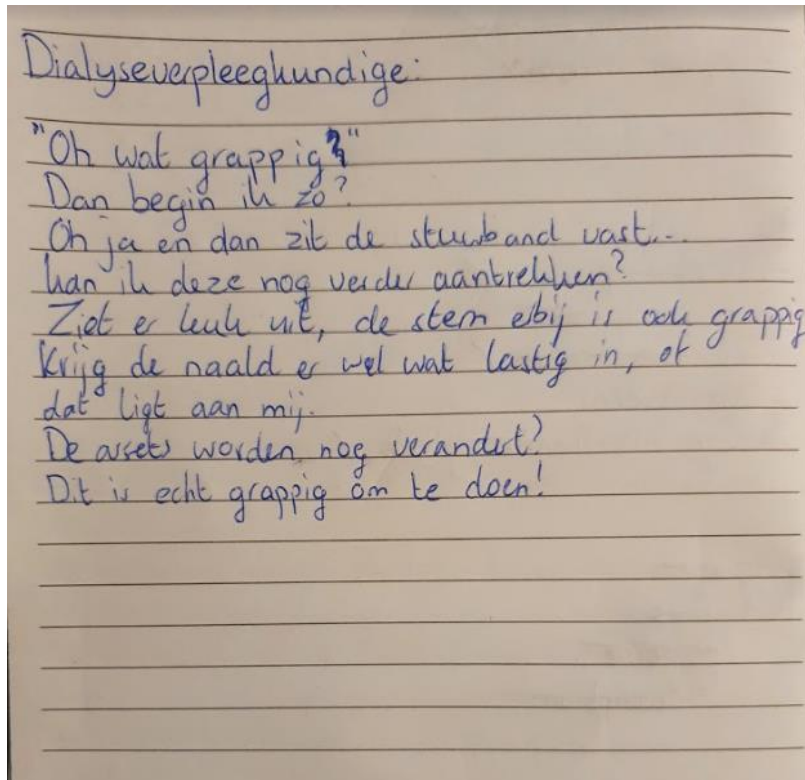 Dialyseverpleegkundige:
"Oh wat grappig!"
Dan begin ik zo?
Oh ja en dan zit de stuwband vast...
kan ik deze nog verder aantrekken?
Ziet er leuk uit, de stem erbij is ook grappig
Krijg de naald er wel wat lastig in, of
dat ligt aan mij.
De assets worden nog verandert?
Dit is echt grappig om te doen!